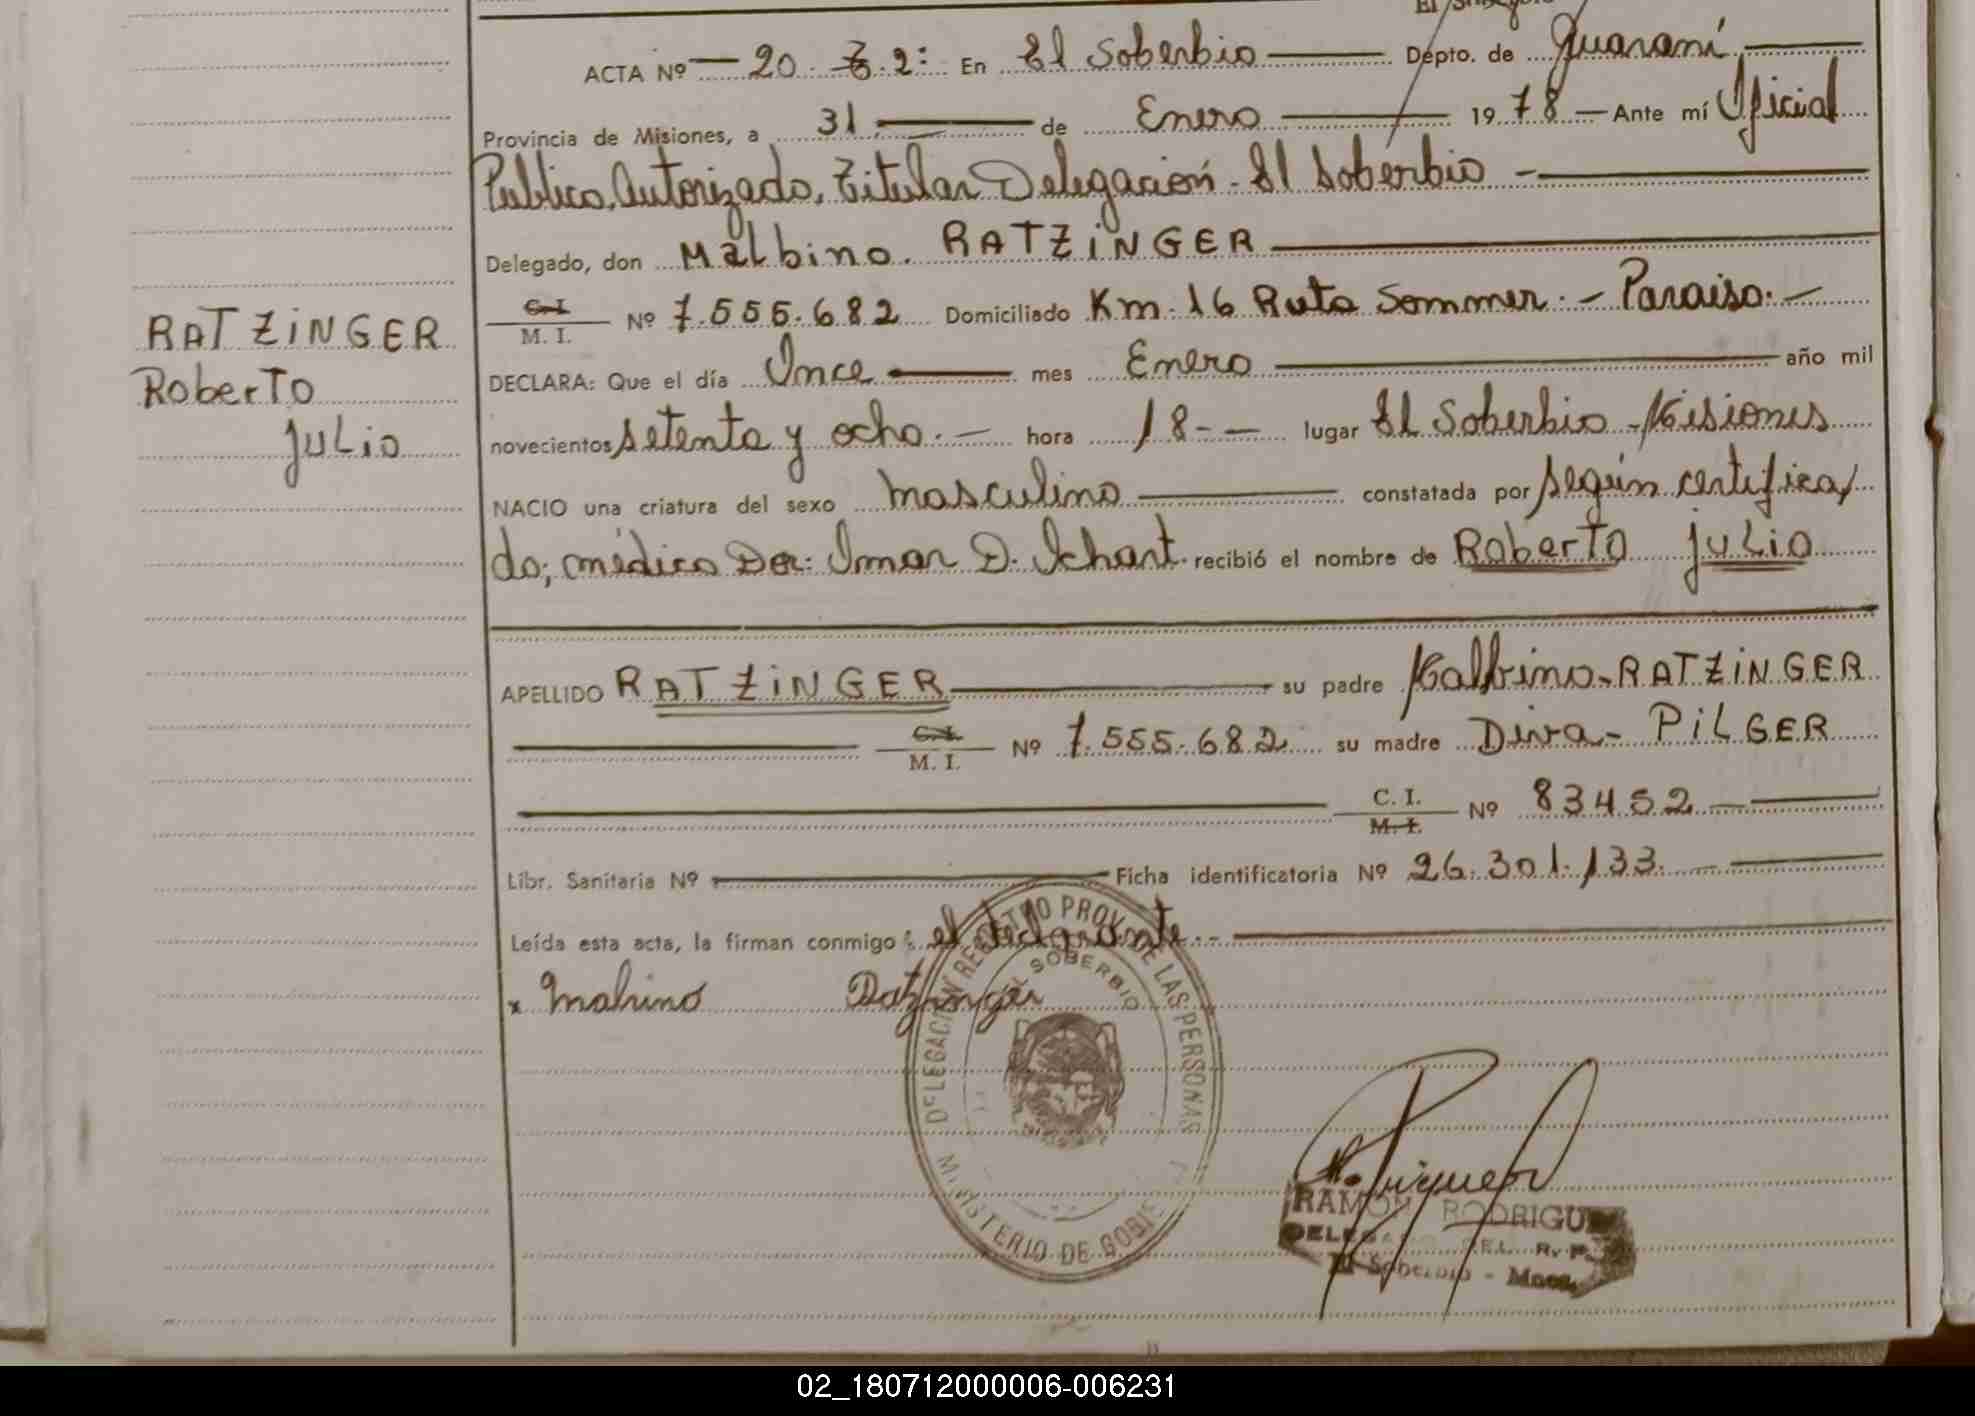 ACTA Nº 20 T. 2: En El Soberbio Depto. de Guaraní
Provincia de Misiones, a 31 de Enero 1978 Ante mí Oficial
Público, Autorizado, Titular Delegación - El Soberbio -
Delegado, don Malbino. RATZINGER
C. I.
M. I. Nº 7.555.682 Domiciliado Km. 16 Ruta Sommer. - Paraiso. -
DECLARA: Que el día Once mes Enero año mil
novecientos setenta y ocho. - hora 18 - - lugar El Soberbio - Misiones
NACIO una criatura del sexo masculino constatada por según certifica/
do, médico Dr: Omar D. Ichart. recibió el nombre de Roberto Julio
RATZINGER
Roberto
Julio
APELLIDO RATZINGER su padre Malbino - RATZINGER
C. I.
M. I. Nº 7.555.682 su madre Diva - PILGER
C. I.
M. I. Nº 83452
Libr. Sanitaria Nº Ficha identificatoria Nº 26.301.133.
Leída esta acta, la firman conmigo: el declarante. -
x Malvino Ratzinger
DELEGACION REGISTRO PROV. DE LAS PERSONAS
EL SOBERBIO
MINISTERIO DE GOBIERNO
RAMON RODRIGUEZ
DELEGADO DEL R. P.
El Soberbio - Mnes.
02_180712000006-006231